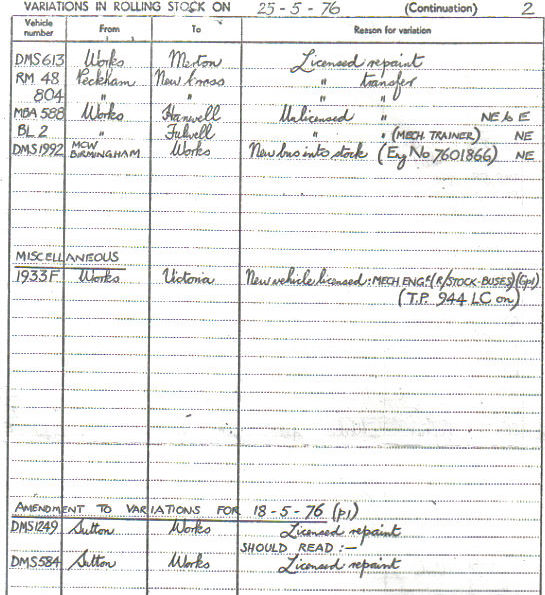 VARIATIONS IN ROLLING STOCK ON 25-5-76 (Continuation) 2
Vehicle number From To Reason for variation
DMS613 Works Merton Licensed repaint
RM 48 Peckham New Cross " transfer
804 " " " "
MBA 588 Works Hanwell Unlicensed " NE to E
BL 2 " Fulwell " " (MECH. TRAINER) NE
DMS1992 MCW BIRMINGHAM Works New bus into stock (Eng No 7601866) NE
MISCELLANEOUS
1933F Works Victoria New vehicle licensed: MECH ENGR (R/STOCK-BUSES)
(T.P. 944 LC on)
AMENDMENT TO VARIATIONS FOR 18-5-76 (p1)
DMS1249 Sutton Works Licensed repaint
SHOULD READ :—
DMS584 Sutton Works Licensed repaint